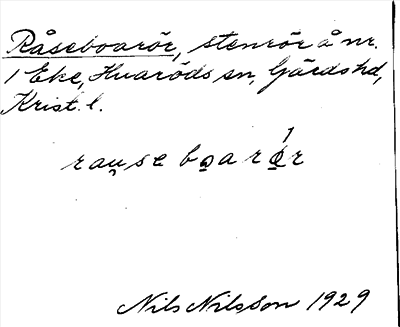 Råseboarör, stenrör å nr.
1 Eke, Huaröds sn, Gärds hd,
Krist. l.
rau̯se bo̲aro̲r
Nils Nilsson 1929